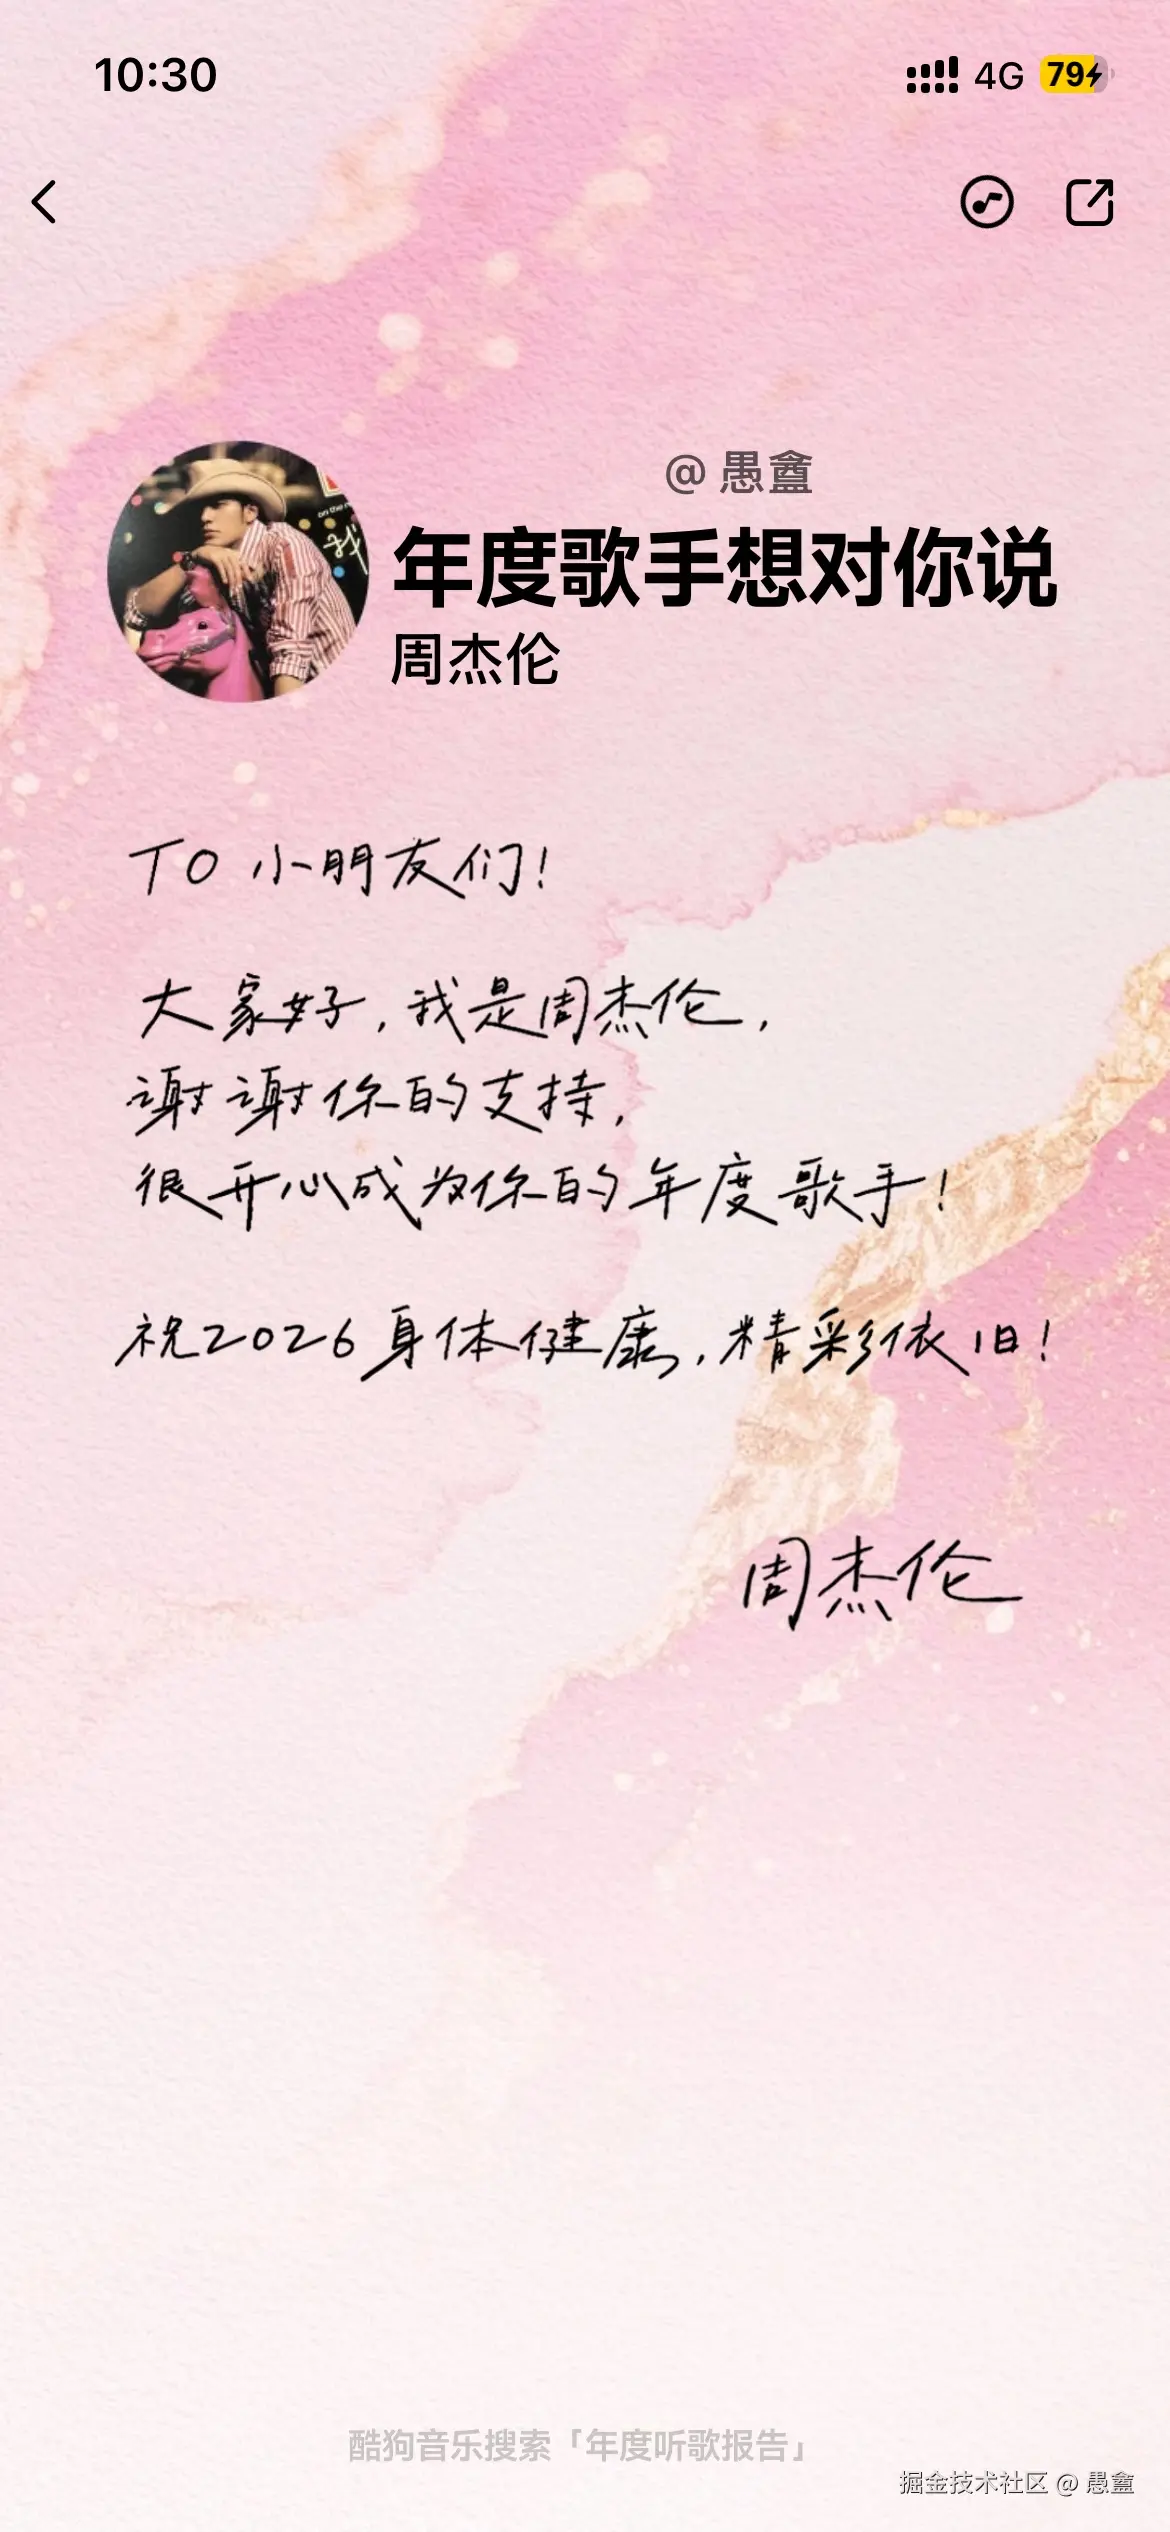 10:30
4G 79
@ 愚盦
年度歌手想对你说
周杰伦
on the
我
TO 小朋友们!
大家好,我是周杰伦,
谢谢你的支持,
很开心成为你的年度歌手!
祝2026身体健康,精彩依旧!
周杰伦
酷狗音乐搜索「年度听歌报告」
掘金技术社区 @ 愚盦